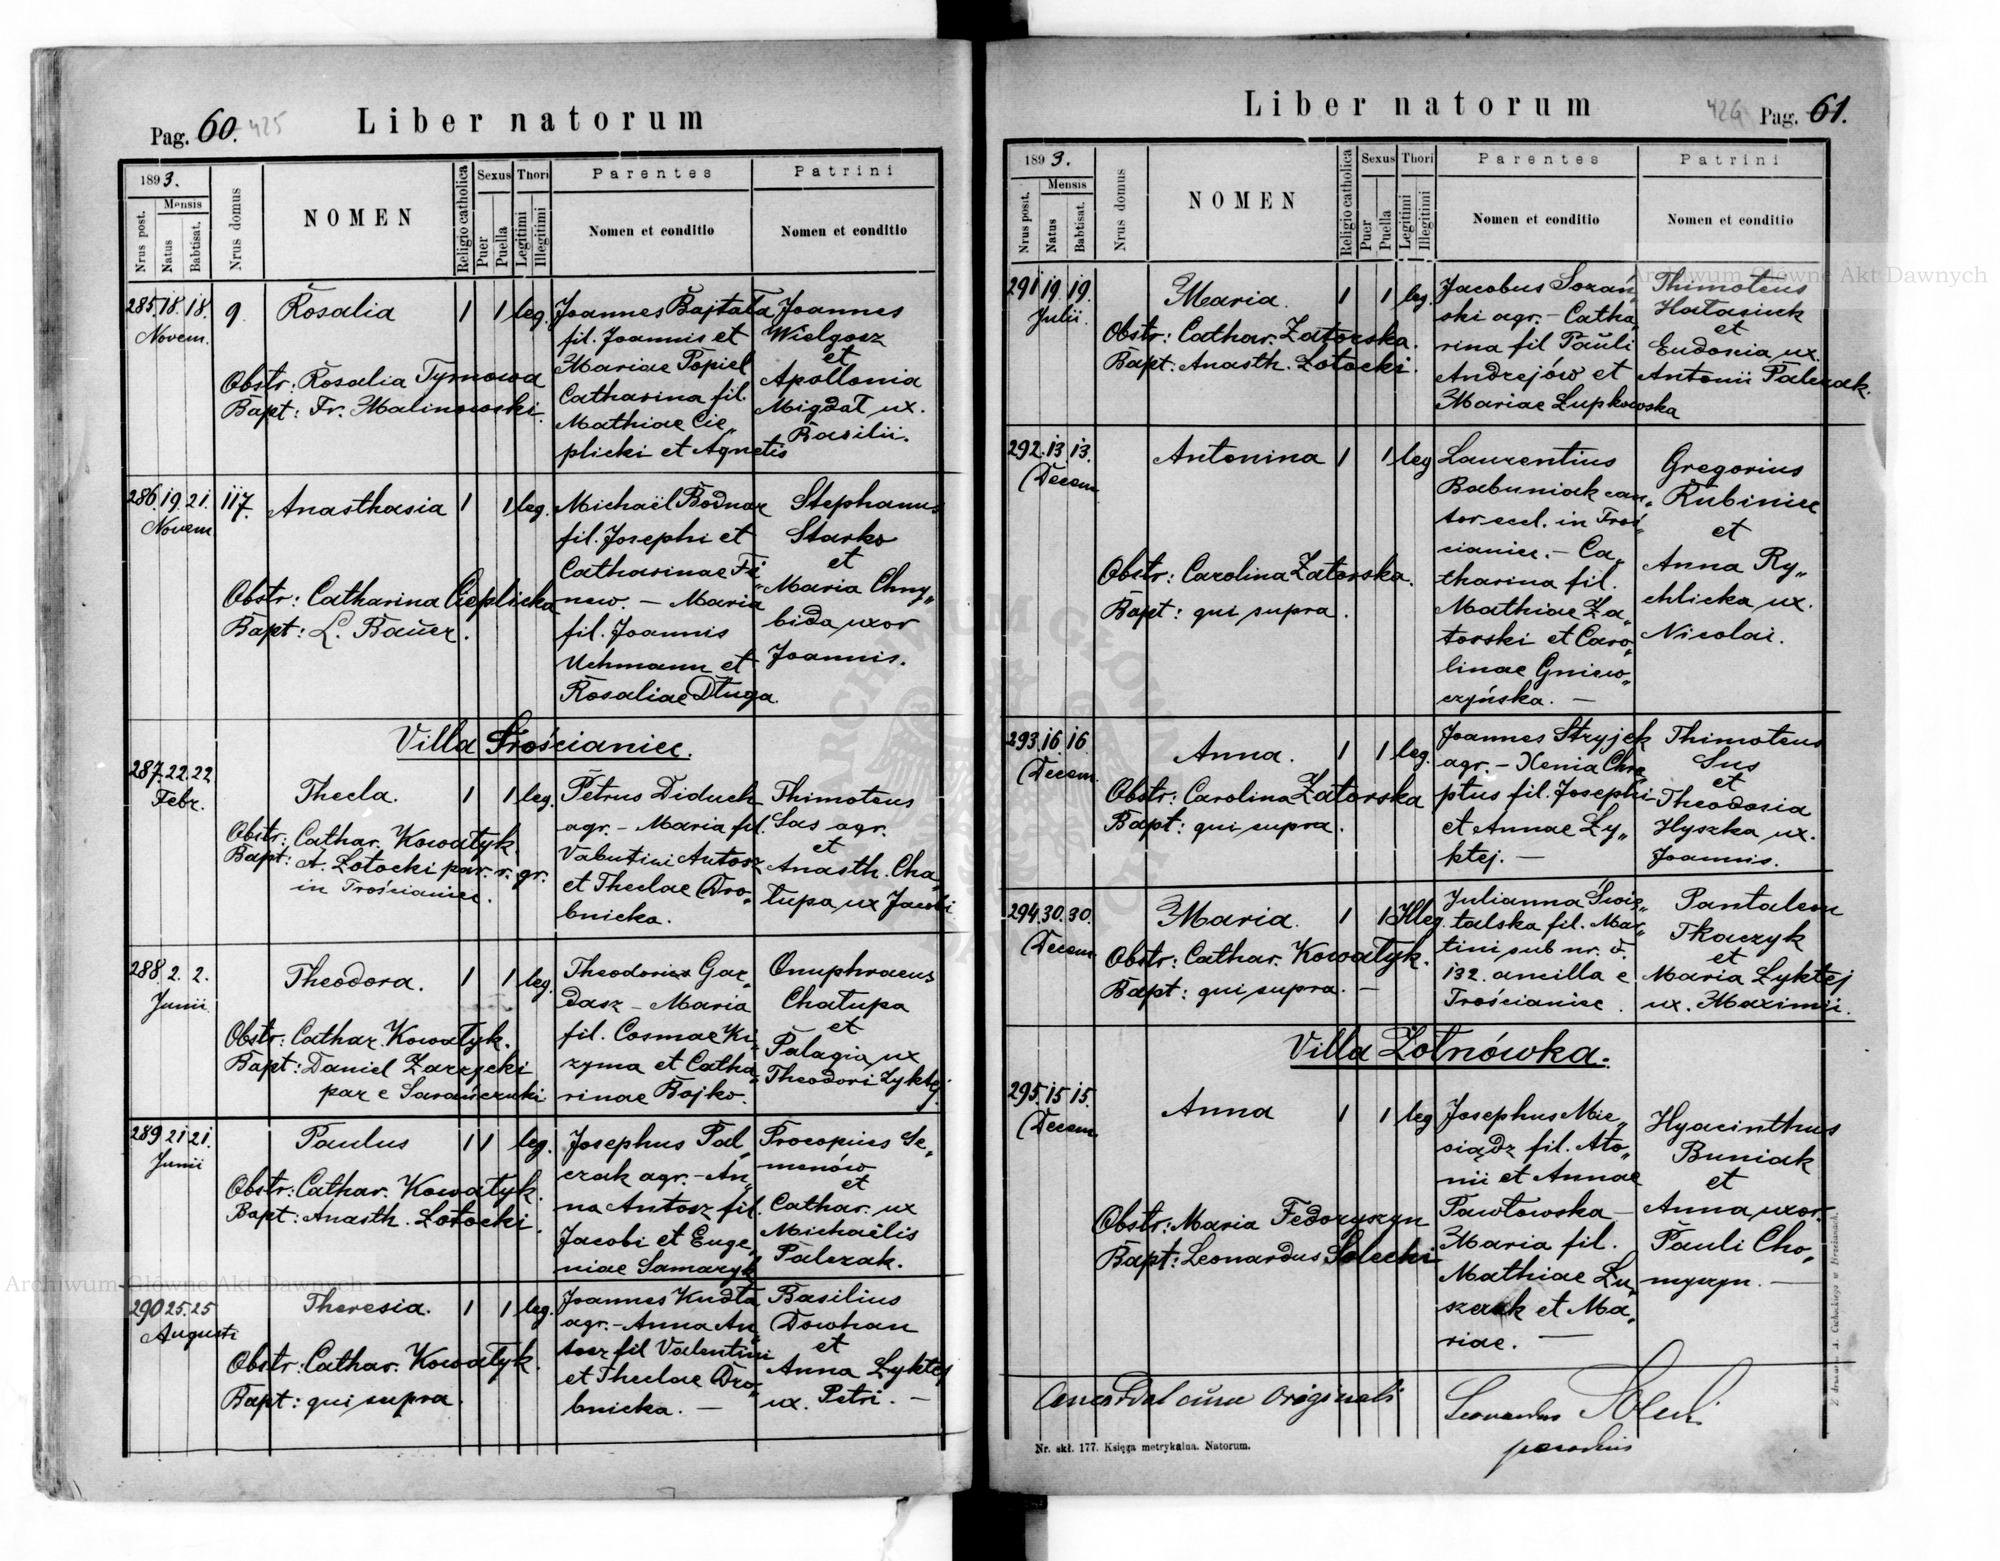 Pag. 60. 425
Liber natorum
1893.
Mensis
Nrus post.
Natus
Babtisat.
Nrus domus
NOMEN
Religio catholica
Sexus
Puer
Puella
Thori
Legitimi
Illegitimi
Parentes
Nomen et conditio
Patrini
Nomen et conditio
285. 18. 18.
Novem.
9.
Rosalia
1 1 leg.
Obstr: Rosalia Tymowa
Bapt: Fr. Malinowski.
Joannes Bajtała
fil. Joannis et
Mariae Popiel
Catharina fil.
Mathiae Cie„
plicki et Agnetis
Joannes
Wielgosz
et
Apollonia
Migdał ux.
Basilii.
286. 19. 21.
Novem.
117.
Anasthasia
1 1 leg.
Obstr: Catharina Cieplicka
Bapt: L. Bauer.
Michaël Bodnar
fil. Josephi et
Catharinae Fi„
new. – Maria
fil. Joannis
Uchmann et
Rosaliae Długa.
Stephanus
Starko
et
Maria Chmy„
bida uxor
Joannis.
Villa Trościaniec.
287. 22. 22.
Febr.
Thecla.
1 1 leg.
Obstr: Cathar. Kowałyk.
Bapt: A. Łotocki par. r. gr.
in Trościaniec.
Petrus Diduch
agr. – Maria fil.
Valentini Antosz
et Theclae Dro„
bnicka.
Thimoteus
Sas agr.
et
Anasth. Cha„
łupa ux Jacobi
288. 2. 2.
Junii
Theodora.
1 1 leg.
Obstr: Cathar. Kowałyk.
Bapt: Daniel Zarzycki
par e Sarańczuki.
Theodorius Gar„
dasz – Maria
fil. Cosmae Ki„
zyma et Catha„
rinae Bojko.
Onuphraeus
Chałupa
et
Palagia ux
Theodori Łyktej
289 21. 21.
Junii
Paulus
1 1 leg.
Obstr: Cathar. Kowałyk.
Bapt: Anasth. Łotocki.
Josephus Pal„
czak agr. – An„
na Antosz fil.
Jacobi et Euge„
niae Samaryk
Procopius Se„
menów
et
Cathar. ux
Michaëlis
Palczak.
290 25. 25
Augusti
Theresia.
1 1 leg.
Obstr: Cathar. Kowałyk.
Bapt: qui supra.
Joannes Kudła
agr. – Anna An„
tosz fil Valentini
et Theclae Dro„
bnicka. –
Basilius
Dowhan
et
Anna Łyktej
ux. Petri. –
Liber natorum
426 Pag. 61.
1893.
Mensis
Nrus posit.
Natus
Babtisat.
Nrus domus
NOMEN
Religio catholica
Sexus
Puer
Puella
Thori
Legitimi
Illegitimi
Parentes
Nomen et conditio
Patrini
Nomen et conditio
291 19. 19.
Julii.
Maria.
1 1 leg.
Obstr: Cathar. Zatorska.
Bapt: Anasth. Łotocki.
Jacobus Sorań„
ski agr. – Catha„
rina fil Pauli
Andrejów et
Mariae Łupkowska
Thimoteus
Hatasiuk
et
Eudonia ux.
Antonii Palczak.
292. 13. 13.
Decem.
Antonina
1 1 leg
Obstr: Carolina Zatorska.
Bapt: qui supra.
Laurentius
Babuniak can„
tor eccl. in Troś„
cianiec. – Ca„
tharina fil.
Mathiae Za„
torski et Caro„
linae Gniew„
czyńska. –
Gregorius
Rubiniec
et
Anna Ry„
chlicka ux.
Nicolai.
293. 16. 16.
Decem.
Anna.
1 1 leg.
Obstr: Carolina Zatorska
Bapt: qui supra.
Joannes Stryjek
agr. – Xenia Chre„
ptus fil. Josephi
et Annae Ły„
ktej. –
Thimoteus
Sus
et
Theodosia
Hyszka ux.
Joannis.
294. 30. 30.
Decem.
Maria.
1 1 Illeg.
Obstr: Cathar. Kowałyk.
Bapt: qui supra. –
Julianna Świę„
talska fil. Mar„
tini sub nr. d.
132. ancilla e
Trościaniec.
Pantaleon
Tkaczyk
et
Maria Łyktej
ux. Maximii.
Villa Żołnówka.
295. 15 15.
Decem.
Anna
1 1 leg
Obstr: Maria Fedoryszyn
Bapt: Leonardus Solecki
Josephus Mie„
siądz fil. Ato„
nii et Annae
Pawłowska –
Maria fil.
Mathiae Łu„
szczak et Ma„
riae. –
Hyacinthus
Buniak
et
Anna uxor
Pauli Cho„
myszyn. –
Concordat cum Originali
Leonardus Solecki
parochus
Nr. skł. 177. Księga metrykalna. Natorum.
Archiwum Główne Akt Dawnych
Archiwum Główne Akt Dawnych